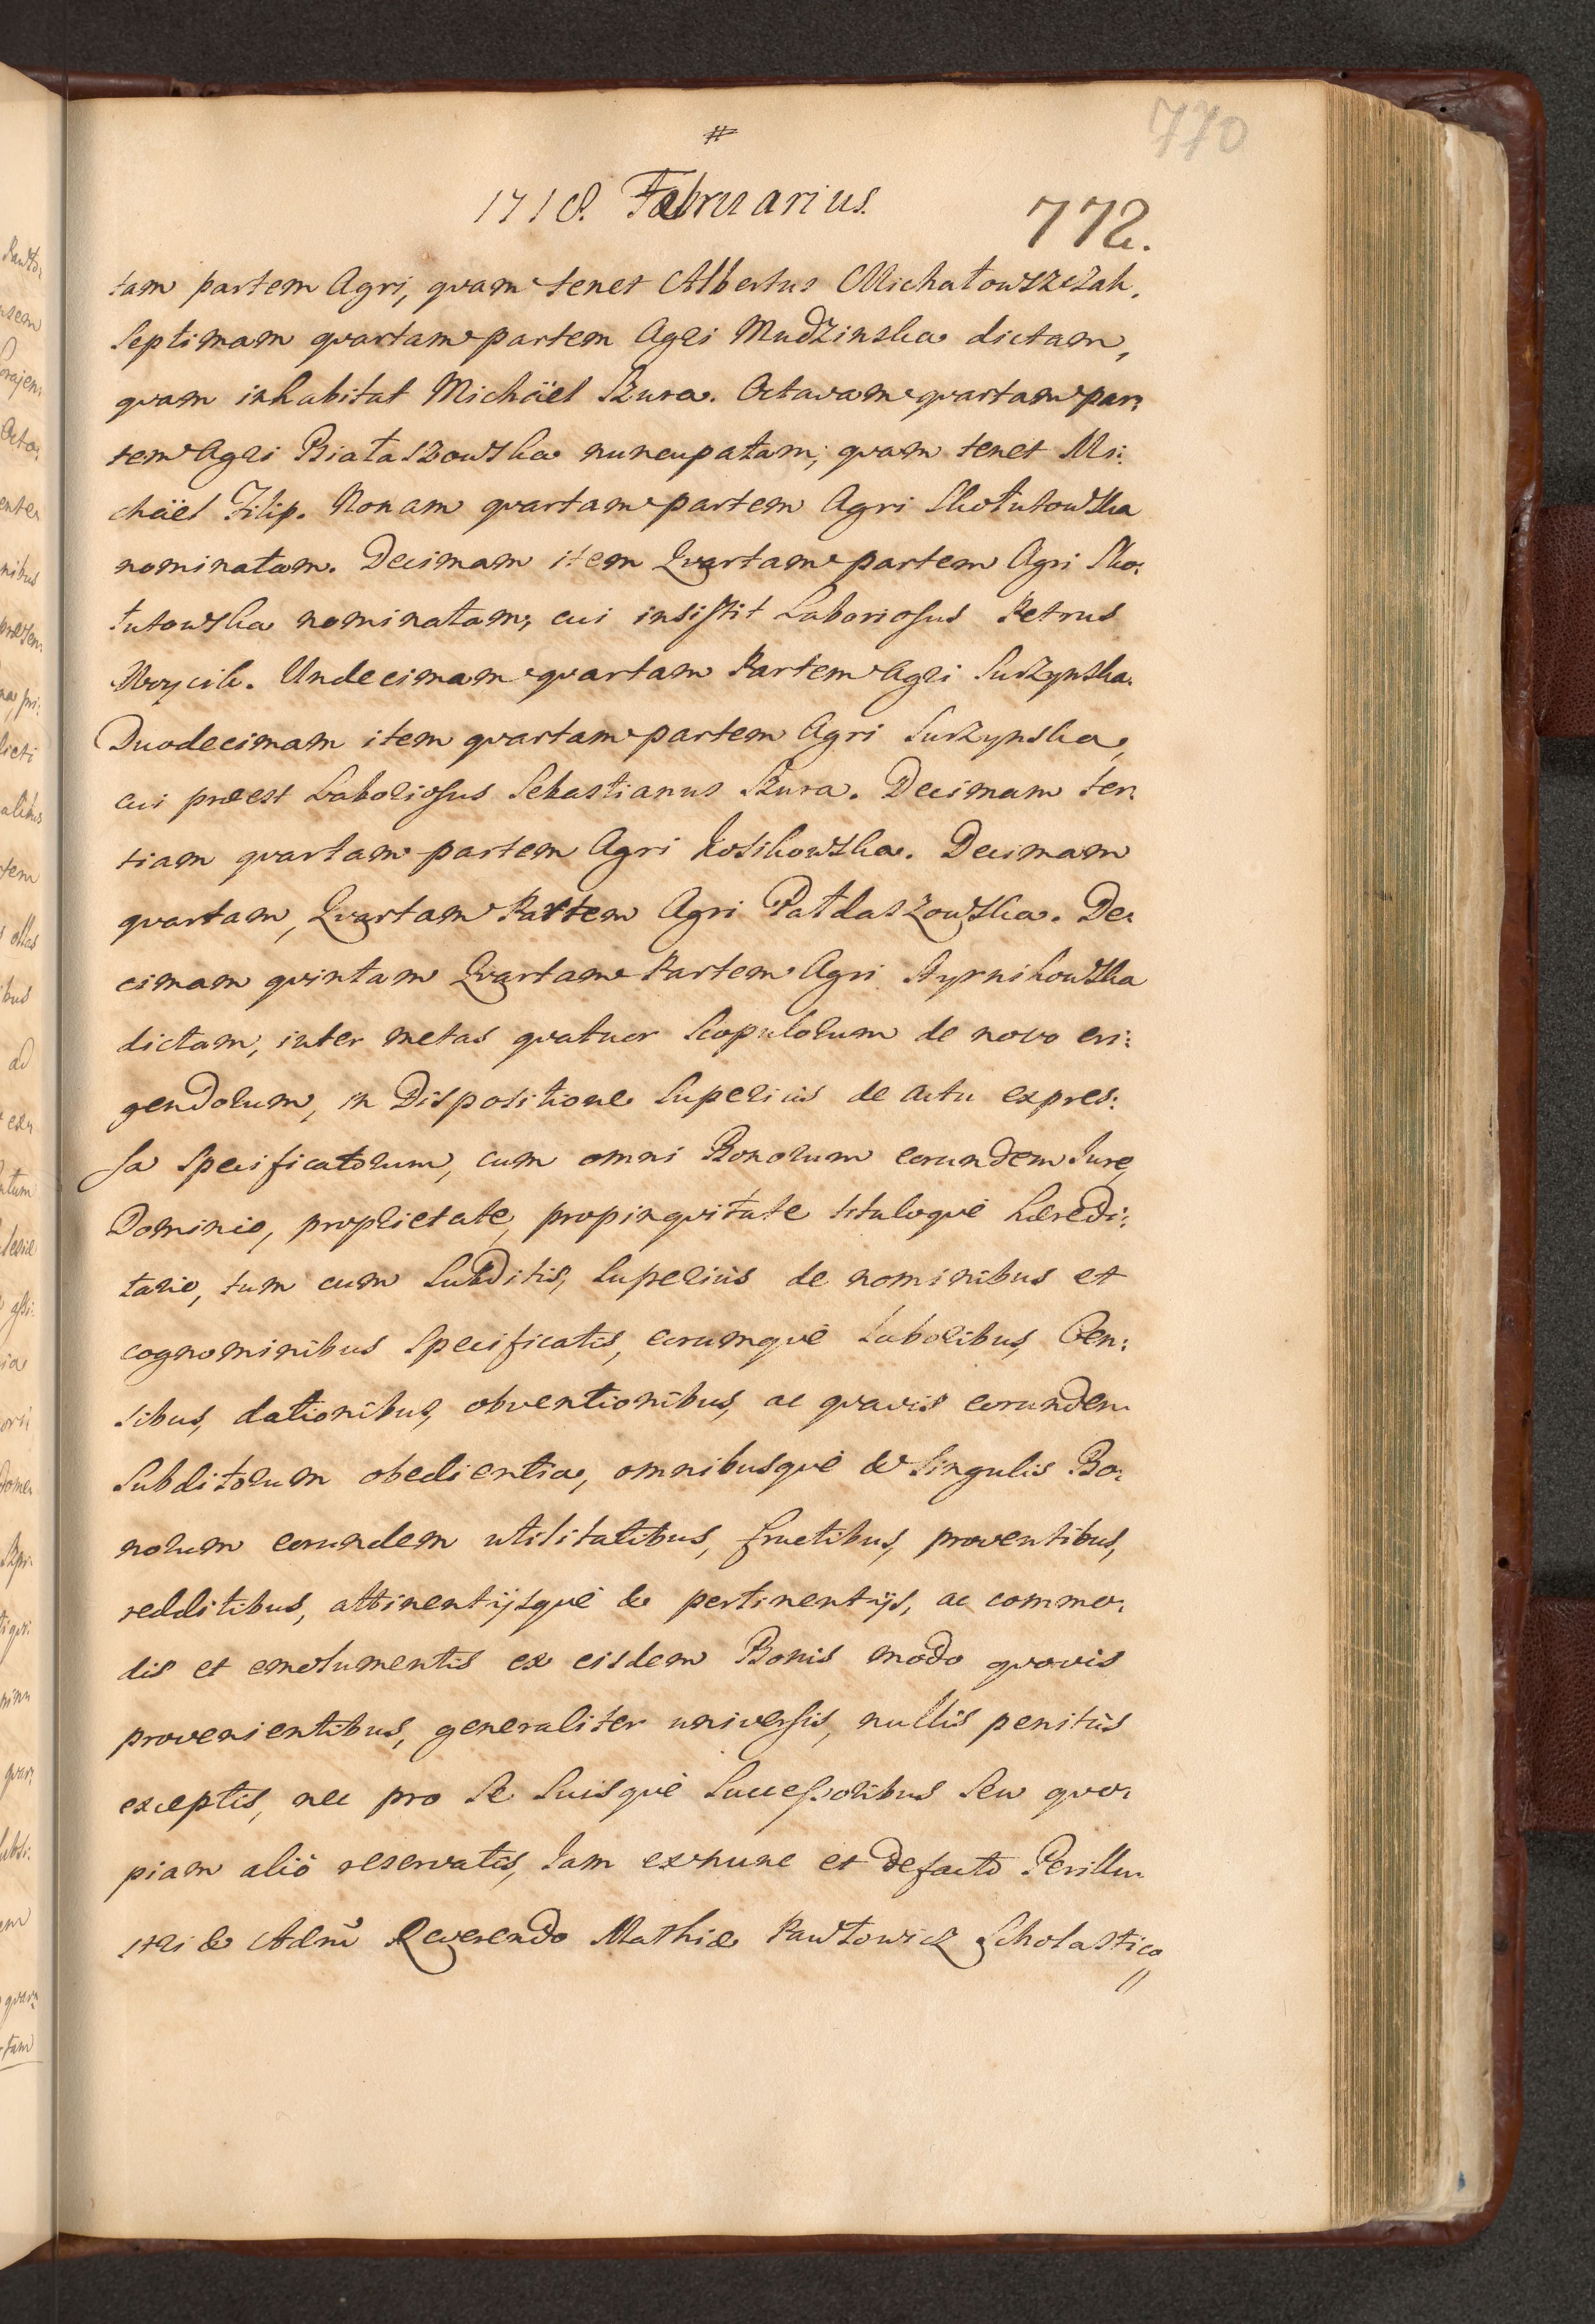 #
770
1718. Februarius.
772.
tam partem Agri, quam tenet Albertus Michałowszczak.
Septimam quartam partem Agri Mudzinska dictam,
quam inhabitat Michäel Szura. Octavam quartam par:
tem Agri Białaszowska nuncupatam, quam tenet Mi:
chäel Filip. Nonam quartam partem Agri Skołutowska
nominatam. Decimam item Quartam partem Agri Sko:
łutowska nominatam, cui insistit Laboriosus Petrus
Woycik. Undecimam quartam Partem Agri Suszynska.
Duodecimam item quartam partem Agri Suszynska,
cui præest Laboriosus Sebastianus Szura. Decimam ter:
tiam quartam partem Agri Kosikowska. Decimam
quartam, Quartam Partem Agri Pałdaszowska. De:
cimam quintam Quartam Partem Agri Styrnikowska
dictam, inter metas quatuor Scopulorum de novo eri:
gendorum, in Dispositione Superiùs de actu expres:
sa Specificatorum, cum omni Bonorum eorundem Jure,
Dominio, proprietate, propinquitate tituloquè hæredi:
tario, tum cum Subditis, Superiùs de nominibus et
cognominibus Specificatis, eorumquè Laboribus, Cen:
sibus, dationibus, obventionibus, ac quavis eorundem
Subditorum obedientia, omnibusquè & Singulis Bo:
norum eorundem utilitatibus, fructibus, proventibus,
redditibus, attinentijsquè & pertinentijs, ac commo:
dis et emolumentis ex eisdem Bonis modo quovis
provenientibus, generaliter universis, nullis penitùs
exceptis, nec pro Se Suisquè Successoribus Seu quo:
piam aliô reservatis, Jam exnunc et defacto Perillu:
stri & Adm̃ Reverendo Mathiæ Pawłowicz Scholastico
//